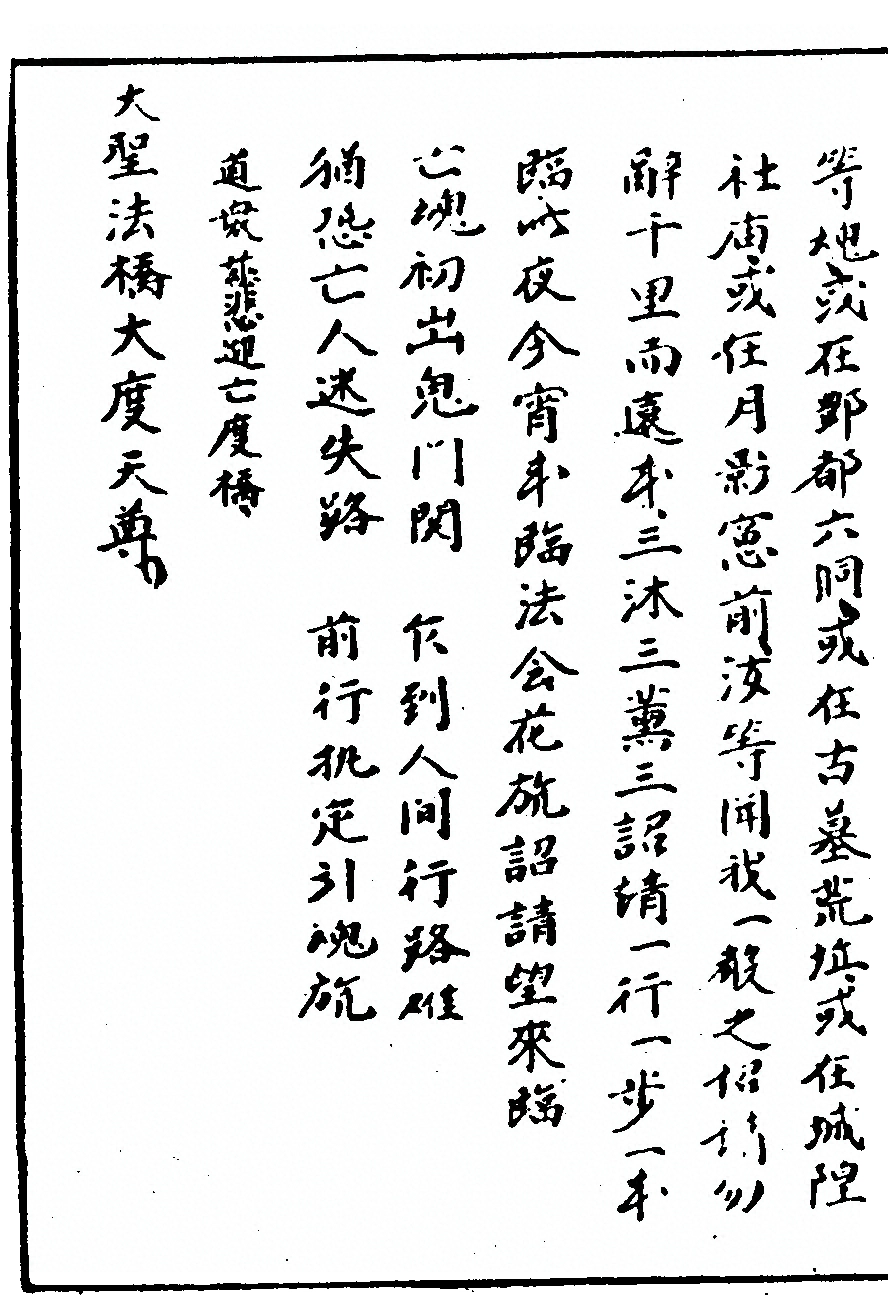 等魂或在酆都六洞或在古墓荒坵或在城隍
社庙或在月影窓前汝等聞我一聲之招請勿
辭千里而遠来三沐三薰三詔請一行一步一来
臨此夜今宵来臨法会花旂詔請望來臨
亡魂初出鬼门関 乍到人间行路难
犹恐亡人迷失路 前行執定引魂旂
道衆慈悲迎亡度橋
大聖法橋大度天尊